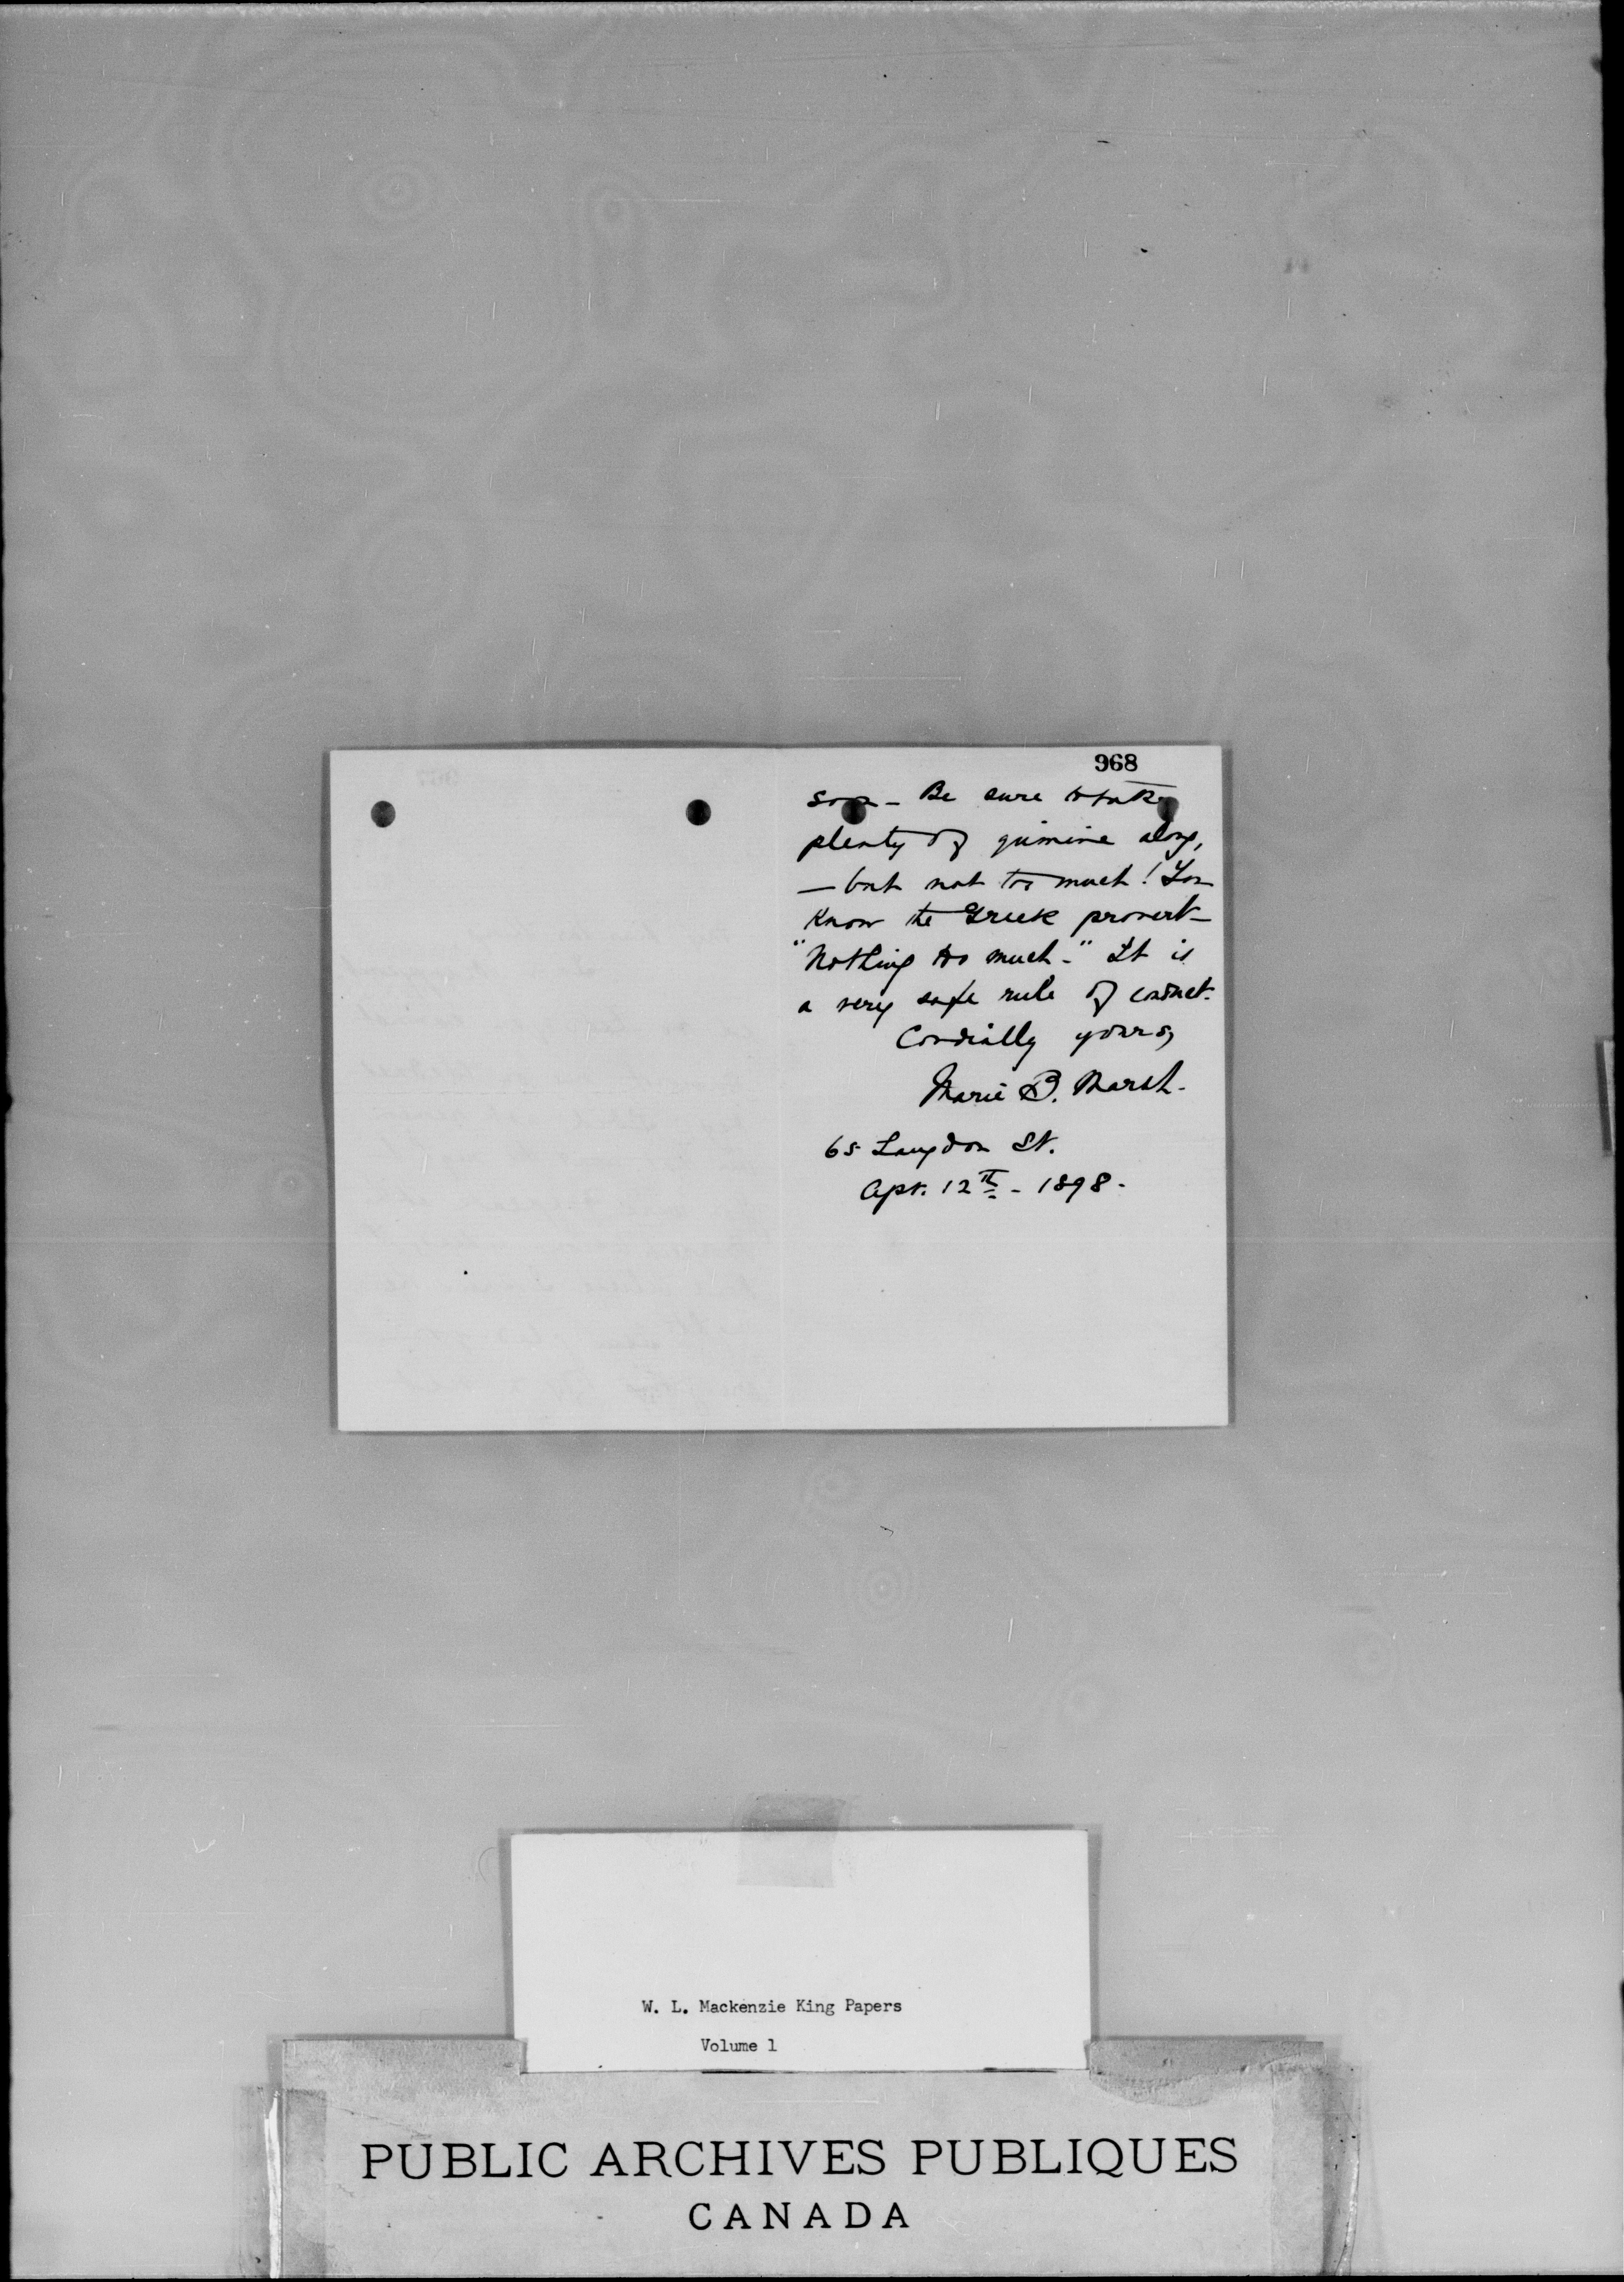 968
soon - Be sure to take
plenty of quinine along,
— but not too much! You
know the Greek proverb—
"Nothing too much." It is
a very safe rule of conduct.
Cordially yours,
Marie B. Marsh.
65 Langdon St.
Apr. 12th - 1898.
W. L. Mackenzie King Papers
Volume 1
PUBLIC ARCHIVES PUBLIQUES
CANADA